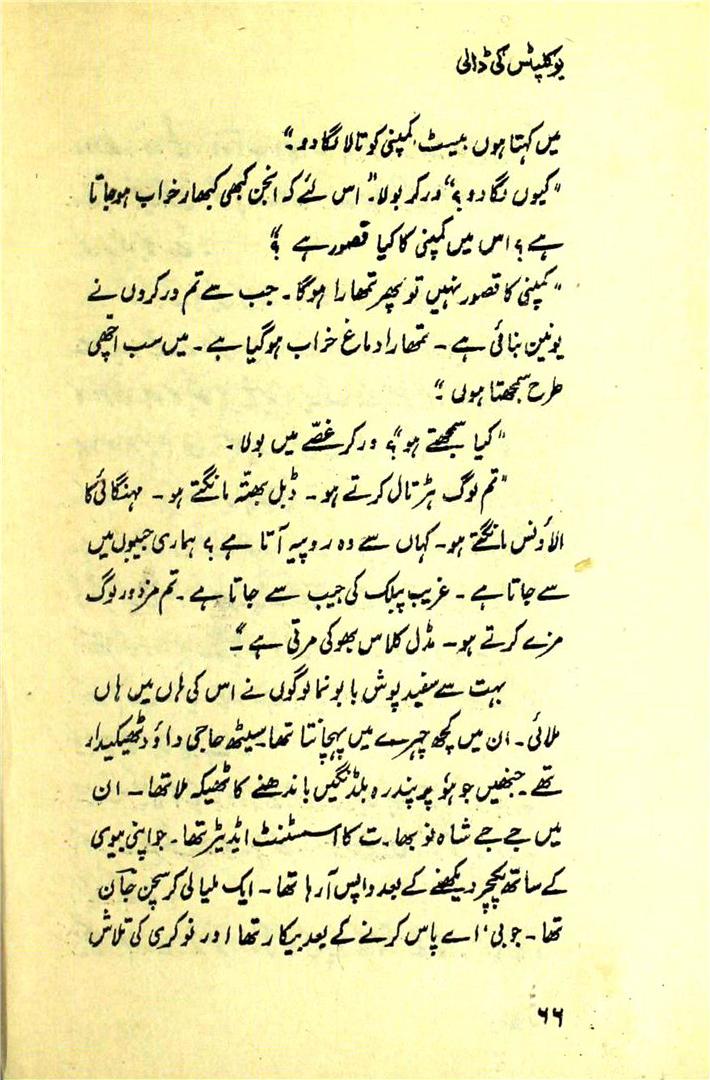 یوکلپٹس کی ڈالی
میں کہتا ہوں بیسٹ کمپنی کو تالا لگا دو۔"
"کیوں لگا دو؟" ورکر بولا۔ "اس لئے کہ انجن کبھی کبھار خراب ہو جاتا
ہے؟ اس میں کمپنی کا کیا قصور ہے؟"
"کمپنی کا قصور نہیں تو پھر تمھارا ہوگا۔ جب سے تم ورکروں نے
یونین بنائی ہے۔ تمھارا دماغ خراب ہو گیا ہے۔ میں سب اچھی
طرح سمجھتا ہوں۔"
"کیا سمجھتے ہو؟" ورکر غصّے میں بولا۔
"تم لوگ ہڑتال کرتے ہو۔ ڈبل بھتّہ مانگتے ہو۔ مہنگائی کا
الاؤنس مانگتے ہو۔ کہاں سے وہ روپیہ آتا ہے؟ ہماری جیبوں میں
سے جاتا ہے۔ غریب پبلک کی جیب سے جاتا ہے۔ تم مزدور لوگ
مزے کرتے ہو۔ مڈل کلاس بھوکی مرتی ہے۔"
بہت سے سفید پوش بابو نما لوگوں نے اس کی ہاں میں ہاں
ملائی۔ ان میں کچھ چہرے میں پہچانتا تھا۔ سیٹھ حاجی داؤد ٹھیکیدار
تھے۔ جنھیں جوہو پر پندرہ بلڈنگیں باندھنے کا ٹھیکہ ملا تھا۔ ان
میں جے جے شاہ نو بھارت کا اسسٹنٹ ایڈیٹر تھا۔ جو اپنی بیوی
کے ساتھ پکچر دیکھنے کے بعد واپس آ رہا تھا۔ ایک ملیالی کرسچن جان
تھا۔ جو بی، اے پاس کرنے کے بعد بیکار تھا اور نوکری کی تلاش
۶۶